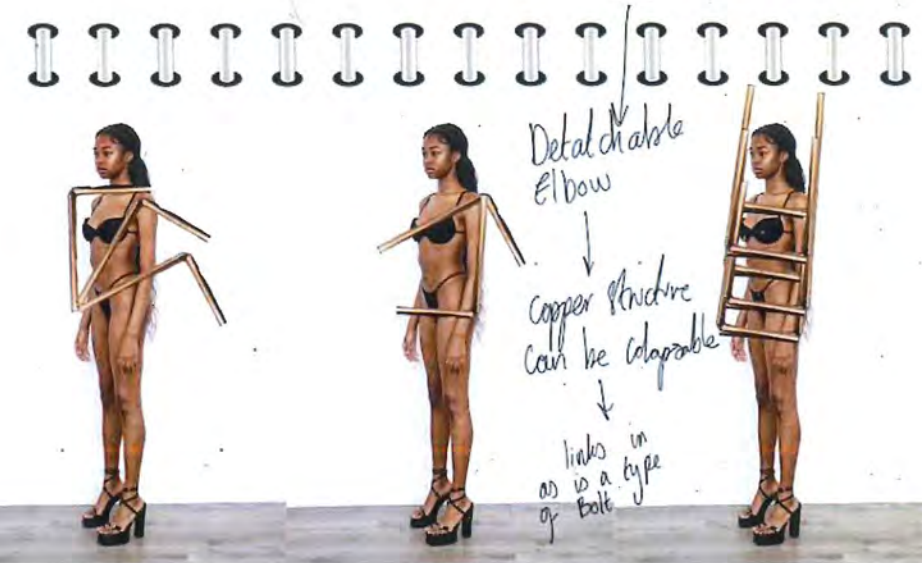 Detatchable
Elbow
Copper Structure
can be colapsable
links in
as is a type
of Bolt